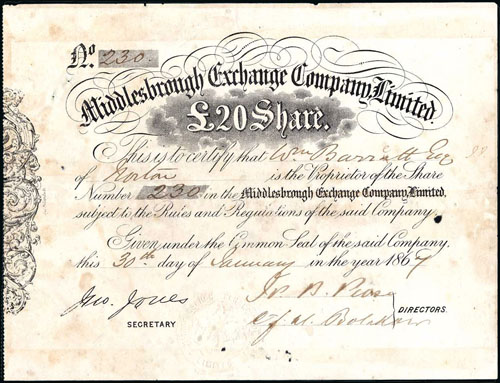 No. 230.
Middlesbrough Exchange Company, Limited.
£20 Share.
This is to certify that Wm Barratt Esq
of Norton is the Proprietor of the Share
Number 230 in the Middlesbrough Exchange Company, Limited,
subject to the Rules and Regulations of the said Company.
Given under the Common Seal of the said Company,
this 30th day of January in the year 1867
Geo. Jones
SECRETARY
DIRECTORS.